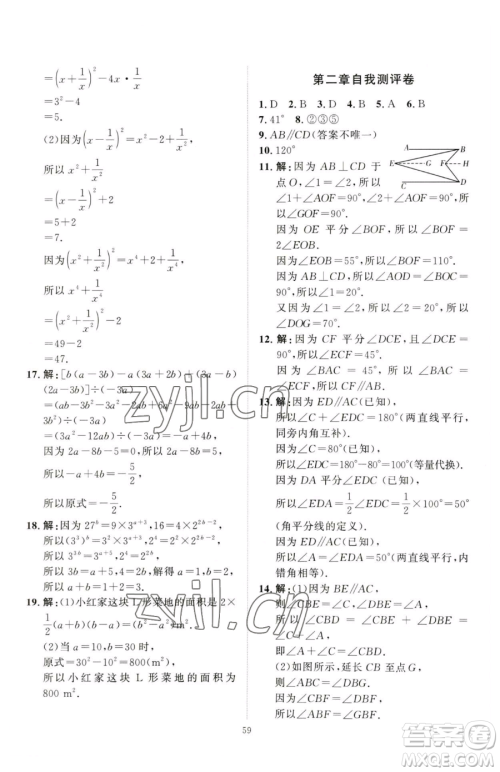 =(x+1/x)²-4x·1/x
=3²-4
=5.
(2)因为(x-1/x)²=x²+1/x²-2,
所以 x²+1/x²
=(x-1/x)²+2
=5+2
=7.
因为(x²+1/x²)²=x⁴+1/x⁴+2,
所以 x⁴+1/x⁴
=(x²+1/x²)²-2
=49-2
=47.
17. 解:[b(a-3b)-a(3a+2b)+(3a-b)
(2a-3b)]÷(-3a)
=(ab-3b²-3a²-2ab+6a²-9ab-2ab+
3b²)÷(-3a)
=(3a²-12ab)÷(-3a)=-a+4b.
因为 2a-8b-5=0,所以 2a-8b=5.
所以-a+4b=-5/2.
所以原式=-5/2.
18. 解:因为 27⁶=9×3ᵃ⁺³,16=4×2²ᵇ⁻²,
所以(3³)⁶=3²×3ᵃ⁺³,2⁴=2²×2²ᵇ⁻²,
所以 a=13,b=2.
所以 a+b=13+2=15.
19. 解:(1)小红家这块 L 形菜地的面积是 2×
1/2(a+b)(b-a)=b²-a².
(2)当 a=10,b=30 时,
原式=30²-10²=800(m²).
所以小红家这块 L 形菜地的面积为
800 m².
第二章自我测评卷
1. D 2. B 3. D 4. B 5. A 6. B
7. 41° 8. ②③⑤
9. AB∥CD(答案不唯一)
10. 120°
A B
E G F H
C D
11. 解:因为 AB⊥CD 于
点 O,∠1=∠2,所以
∠1+∠AOF=90°,所
以∠2+∠AOF=90°,
所以∠BOF=110°.
因为 OE 平分∠BOF,所以∠BOF=
2∠EOB.
因为∠EOB=55°,所以∠BOF=110°.
因为 AB⊥CD,所以∠AOD=∠BOC=
90°.
又因为∠1=20°,所以∠2=20°.所以
∠DOG=70°.
12. 解:因为 CF 平分∠DCE,且∠DCE=
90°,
所以∠ECF=45°.
因为∠BAC=45°,所以∠BAC=
∠ECF.所以 CF∥AB.
13. 解:因为 ED∥AC(已知),
所以∠C+∠EDC=180°(两直线平行,
同旁内角互补).
因为∠C=80°(已知),
所以∠EDC=180°-80°=100°(等量代换).
所以∠EDA=1/2∠EDC=1/2×100°=50°
(角平分线的定义).
因为 ED∥AC(已知),
所以∠DAC=∠EDA=50°(两直线平行,内
错角相等).
14. 解:(1)因为 BE∥AC,
则∠C=∠DBE,∠A=∠ABE.
因为∠ABE=∠DBE,
则∠A=∠C,即∠A=∠C.
(2)如图,延长 CB 至点 D,过点 B 作
BE∥AC,
则∠C=∠DBE,∠A=∠ABE.
59